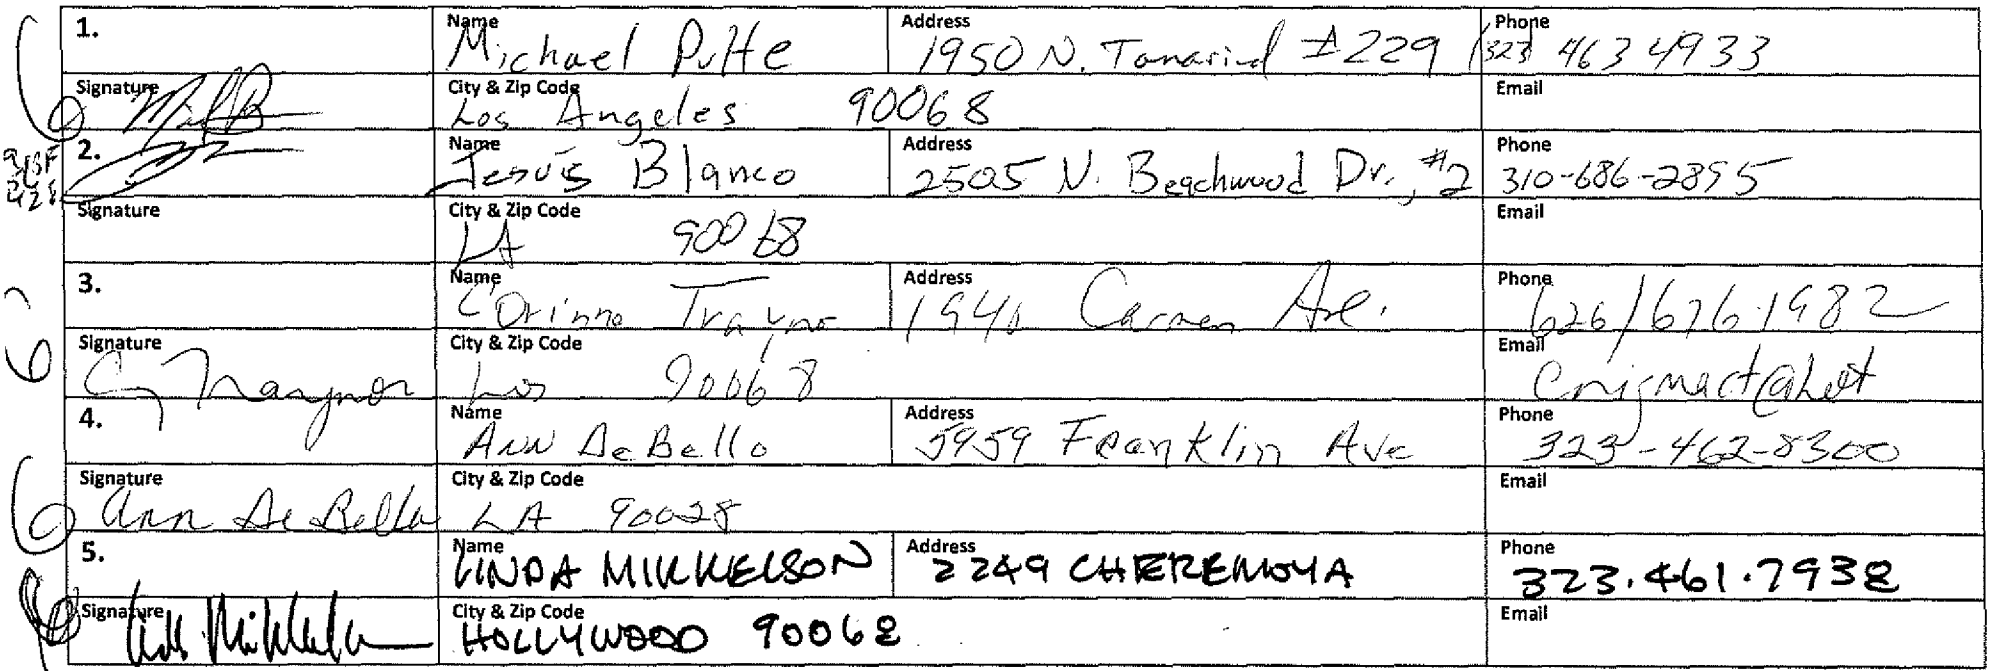 1. Name Michael Putte Address 1950 N. Tamarind #229 Phone (323) 463 4933
Signature City & Zip Code Los Angeles 90068 Email
2. Name Jesús Blanco Address 2505 N. Beachwood Dr., #2 Phone 310-686-2895
Signature City & Zip Code LA 90068 Email
3. Name Corinne Traynor Address Carmen Ave. Phone 626/676-1982
Signature C Traynor City & Zip Code Los 90068 Email enigmact@hot
4. Name Ann DeBello Address 5959 Franklin Ave Phone 323-462-8300
Signature Ann De Bello City & Zip Code LA 90028 Email
5. Name LINDA MIKKELSON Address 2249 CHEREMOYA Phone 323.461.7938
Signature City & Zip Code HOLLYWOOD 90068 Email